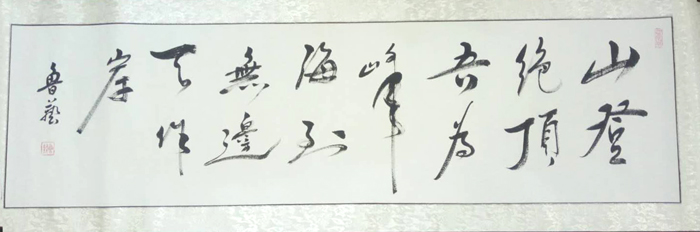 山登
絶頂
吾為
峰
海到
無邊
天作
岸
魯藝